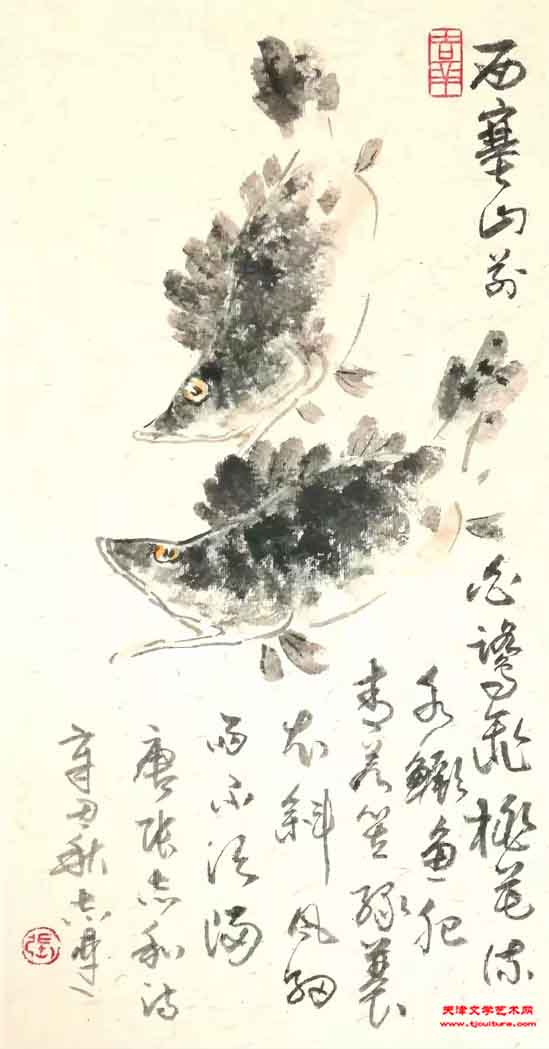 吉羊
西塞山前
白鷺飛桃花流
水鳜鱼肥
青箬笠绿蓑
衣斜风细
雨不须归
唐张志和诗
辛丑秋志
張
天津文学艺术网
www.tjculture.com